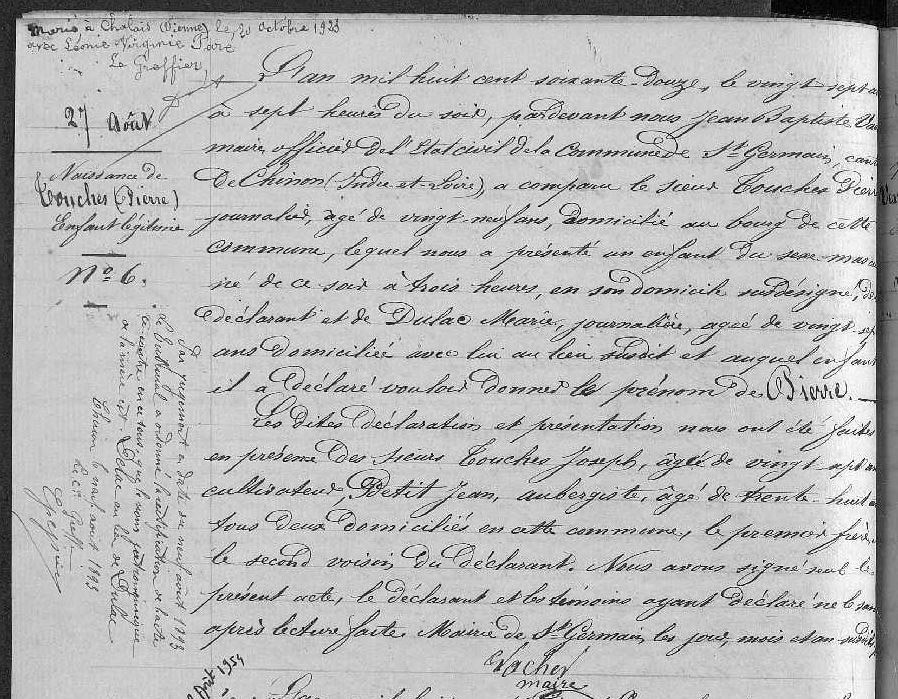 Marié à Chalais (Vienne) le 20 octobre 1923
avec Léonie Virginie Paré
Le Greffier
27 Août
Naissance de
Touches (Pierre)
Enfant légitime
N° 6.
L'an mil huit cent soixante Douze, le vingt sept a
à sept heures du soir, pardevant nous Jean Baptiste
maire officier de l'Etat civil de la Commune de St Germain, can
De Chinon (Indre-et-Loire), a comparu le sieur Touches Pierr
journalier, âgé de vingt neuf ans, domicilié au bourg de cette
commune, lequel nous a présenté un enfant du sexe mas
né de ce soir à trois heures, en son domicile susdésigné, de
déclarant et de Dulac Marie, journalière, agée de vingt
ans domiciliée avec lui au lieu susdit et auquel enfant
il a déclaré vouloir donner le prénom de Pierre.
Les dites déclaration et présentation nous ont été faites
en présence des sieurs Touches Joseph, âgé de vingt sept an
cultivateur, Petit Jean, aubergiste, âgé de trente huit
tous deux domiciliés en cette commune, le premier frère
le second voisin du déclarant. Nous avons signé seul le
présent acte, le déclarant et les témoins ayant déclaré ne le
après lecture faite Mairie de St Germain, les jour, mois et an
Vacher
maire
Par jugement en date du neuf août 1893
le tribunal a ordonné la rectification de l'acte
ci-contre en ce sens que le nom patronymique
de la mère est Delac au lieu de Dulac.
Chinon le neuf août 1893
Le Greffier
1954